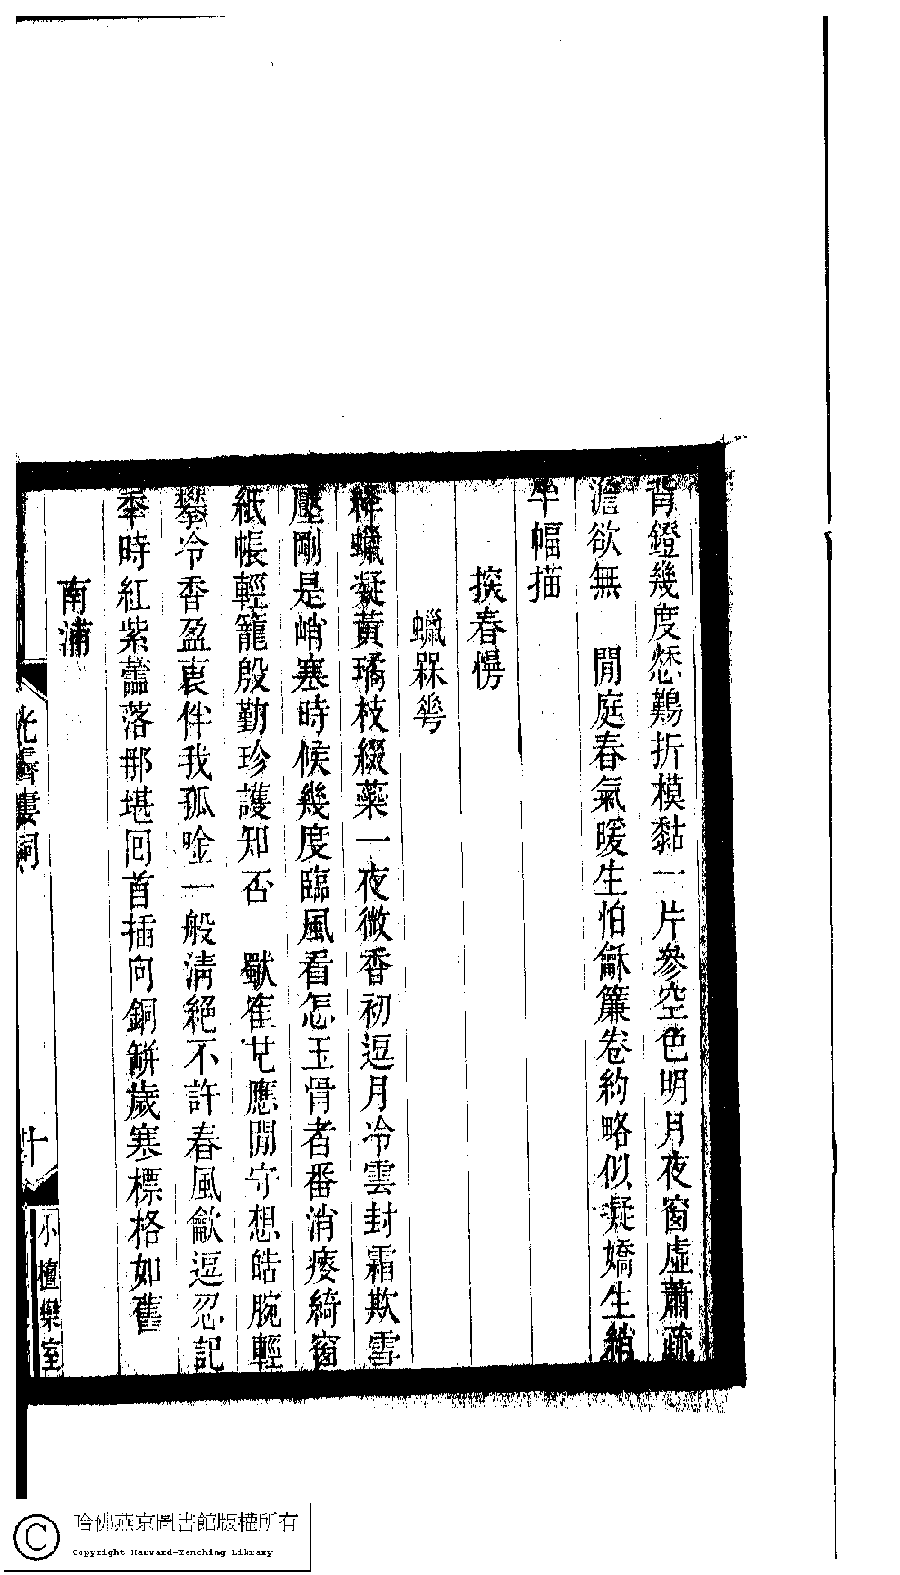 背鐙幾度愁難折模黏一片參空色明月夜窗虛蕭疏
澹欲無　閒庭春氣暖生怕龢簾卷約略似凝嬌生綃
半幅描
探春慢
蠟槑蕚
絳蠟凝黃璚枝綴蘂一夜微香初逗月冷雲封霜欺雪
壓剛是峭寒時候幾度臨風看怎玉骨者番消瘦綺窗
紙帳輕籠殷勤珍護知否　獸崔廿應閒守想皓腕輕
攀冷香盈袖伴我孤唫一般淸絕不許春風歈逗忍記
年時紅紫蘦落那堪回首插向銅缾歲寒標格如舊
南浦
光霽樓詞
十
小檀欒室
哈佛燕京圖書館版權所有
Copyright Harvard-Yenching Library